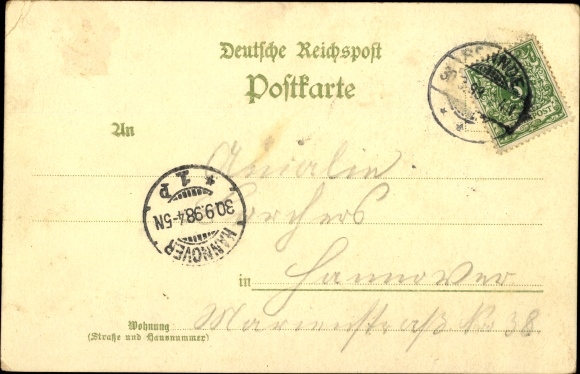 Deutsche Reichspost
Postkarte
An
Amalie
Borchers
in Hannover
Wohnung
(Straße und Hausnummer)
Marienstraße No 38.
HANNOVER
30.9.98.4-5N
* 1 p